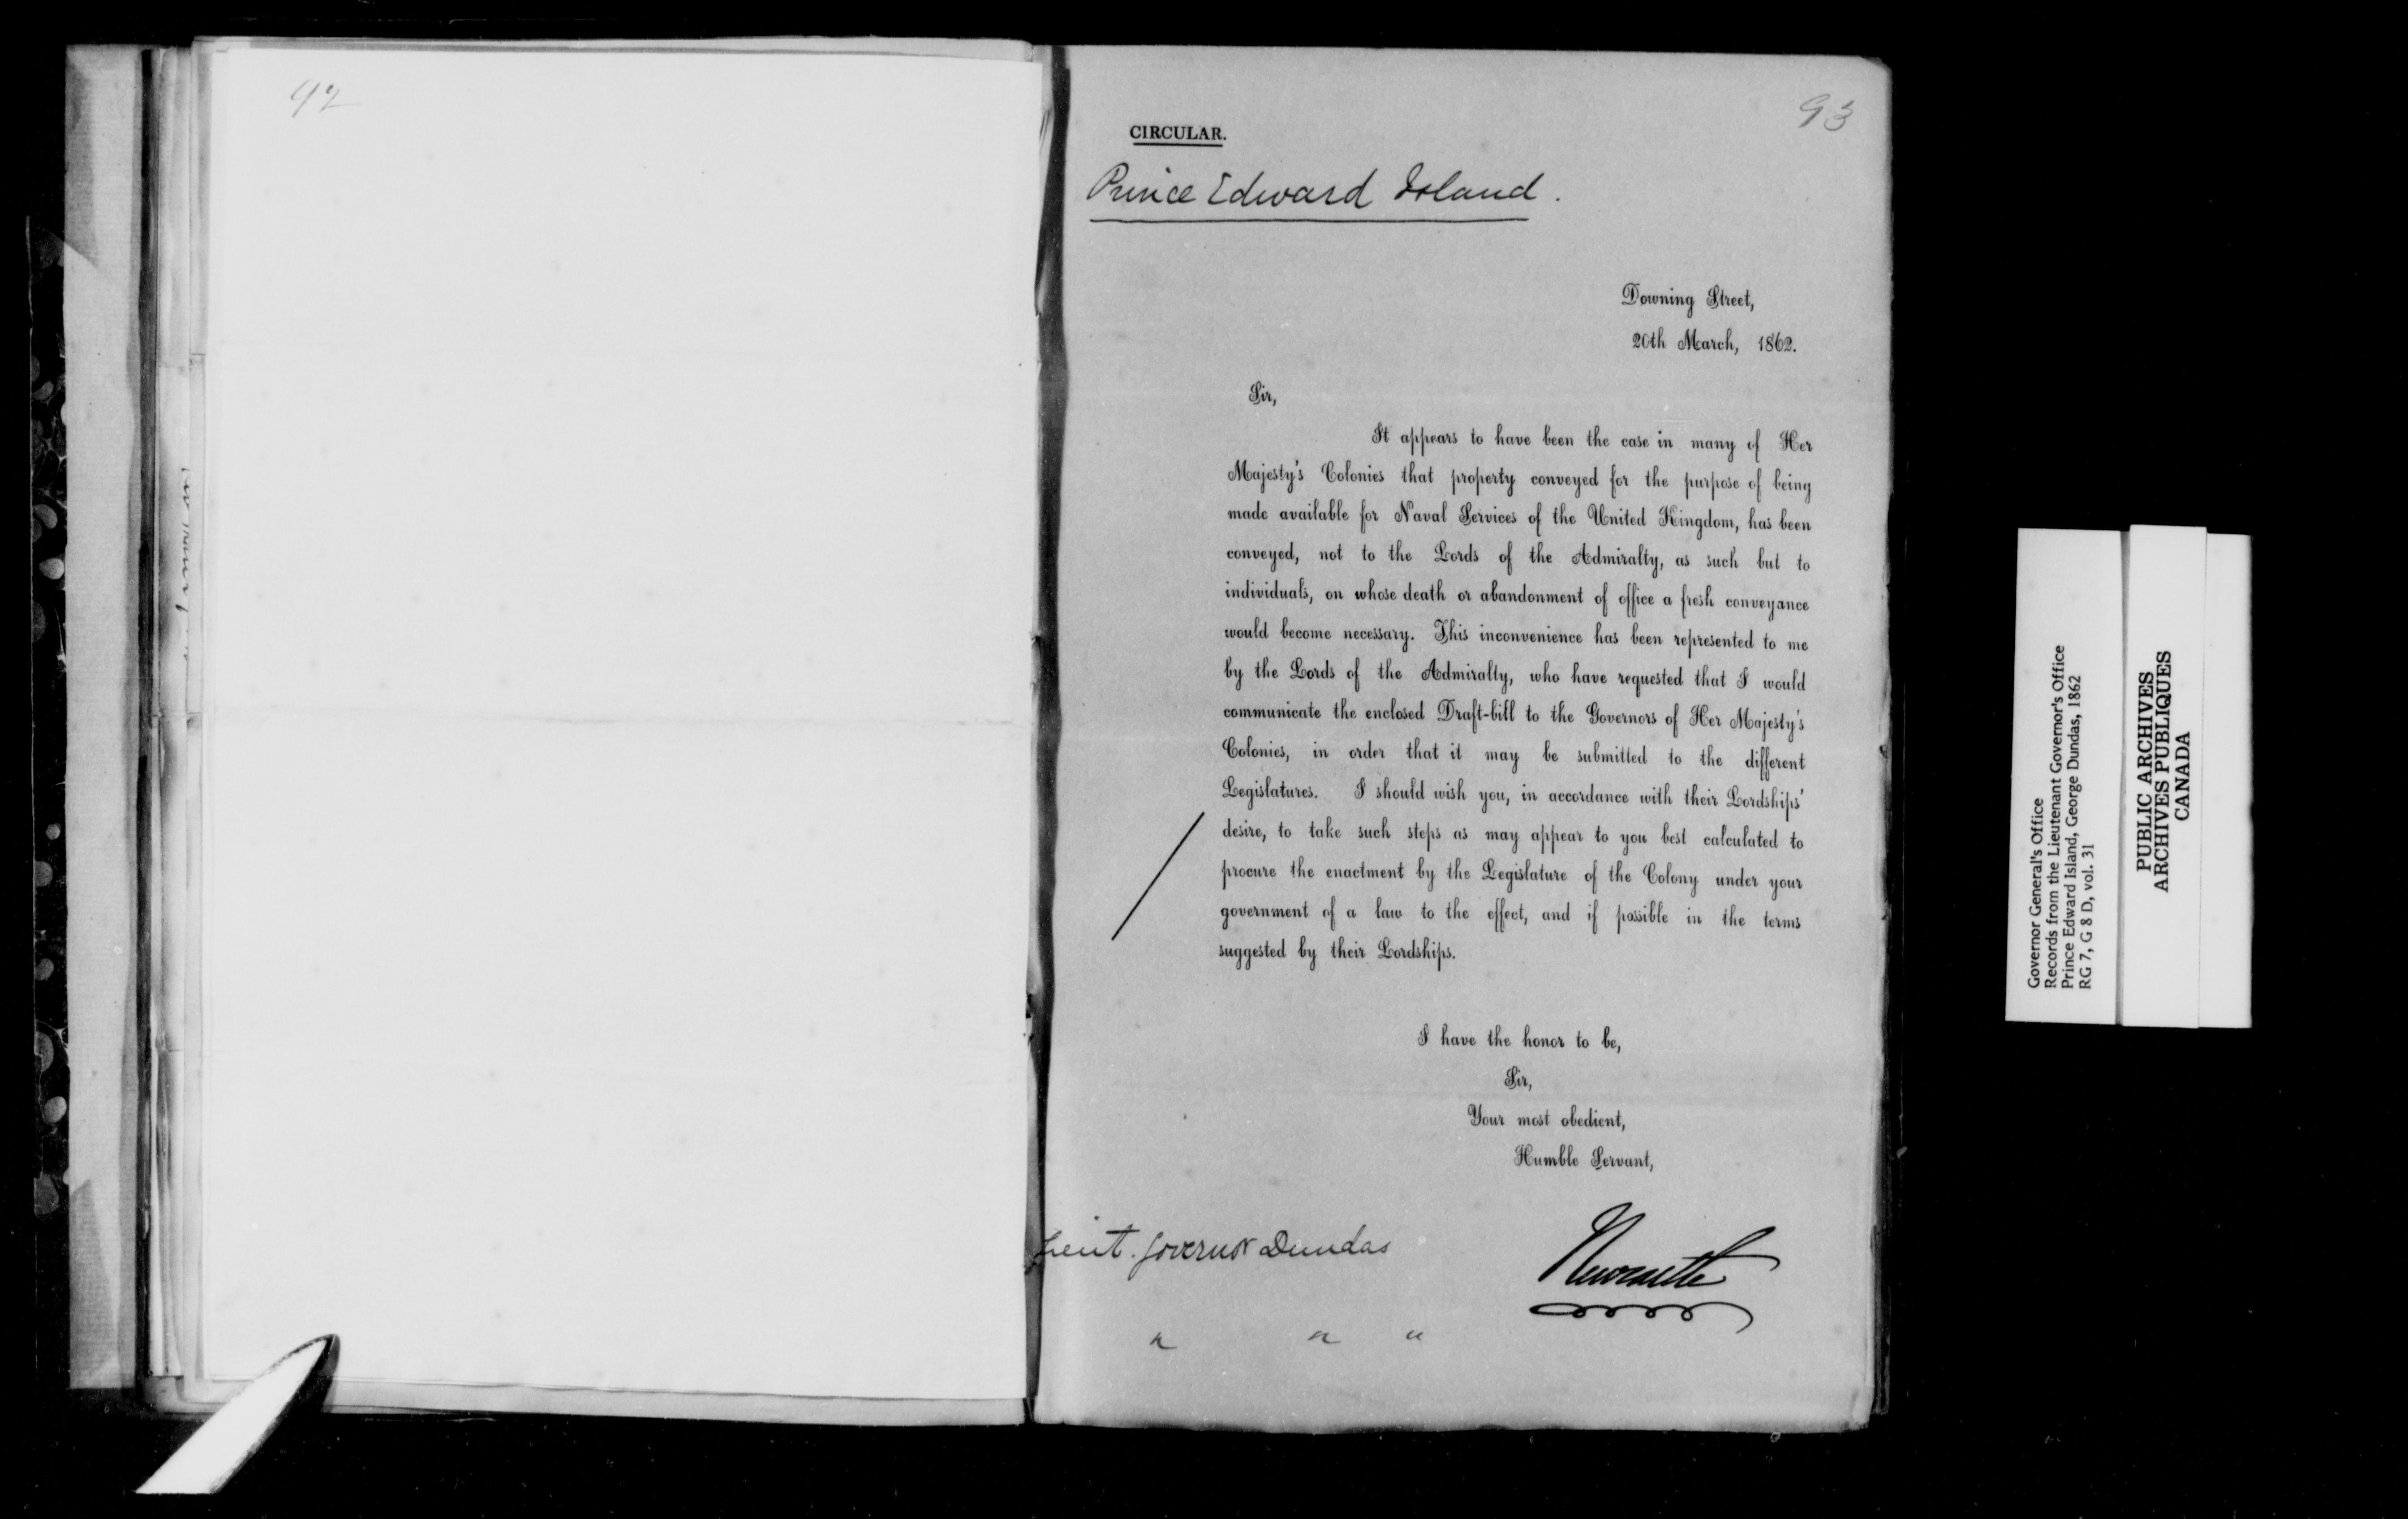 92
93
CIRCULAR.
Prince Edward Island.
Downing Street,
20th March, 1862.
Sir,
It appears to have been the case in many of Her
Majesty's Colonies that property conveyed for the purpose of being
made available for Naval Services of the United Kingdom, has been
conveyed, not to the Lords of the Admiralty, as such but to
individuals, on whose death or abandonment of office a fresh conveyance
would become necessary. This inconvenience has been represented to me
by the Lords of the Admiralty, who have requested that I would
communicate the enclosed Draft-bill to the Governors of Her Majesty's
Colonies, in order that it may be submitted to the different
Legislatures. I should wish you, in accordance with their Lordships'
desire, to take such steps as may appear to you best calculated to
procure the enactment by the Legislature of the Colony under your
government of a law to the effect, and if possible in the terms
suggested by their Lordships.
I have the honor to be,
Sir,
Your most obedient,
Humble Servant,
Lieut. Governor Dundas
Newcastle
Governor General's Office
Records from the Lieutenant Governor's Office
Prince Edward Island, George Dundas, 1862
RG 7, G 8 D, vol. 31
PUBLIC ARCHIVES
ARCHIVES PUBLIQUES
CANADA